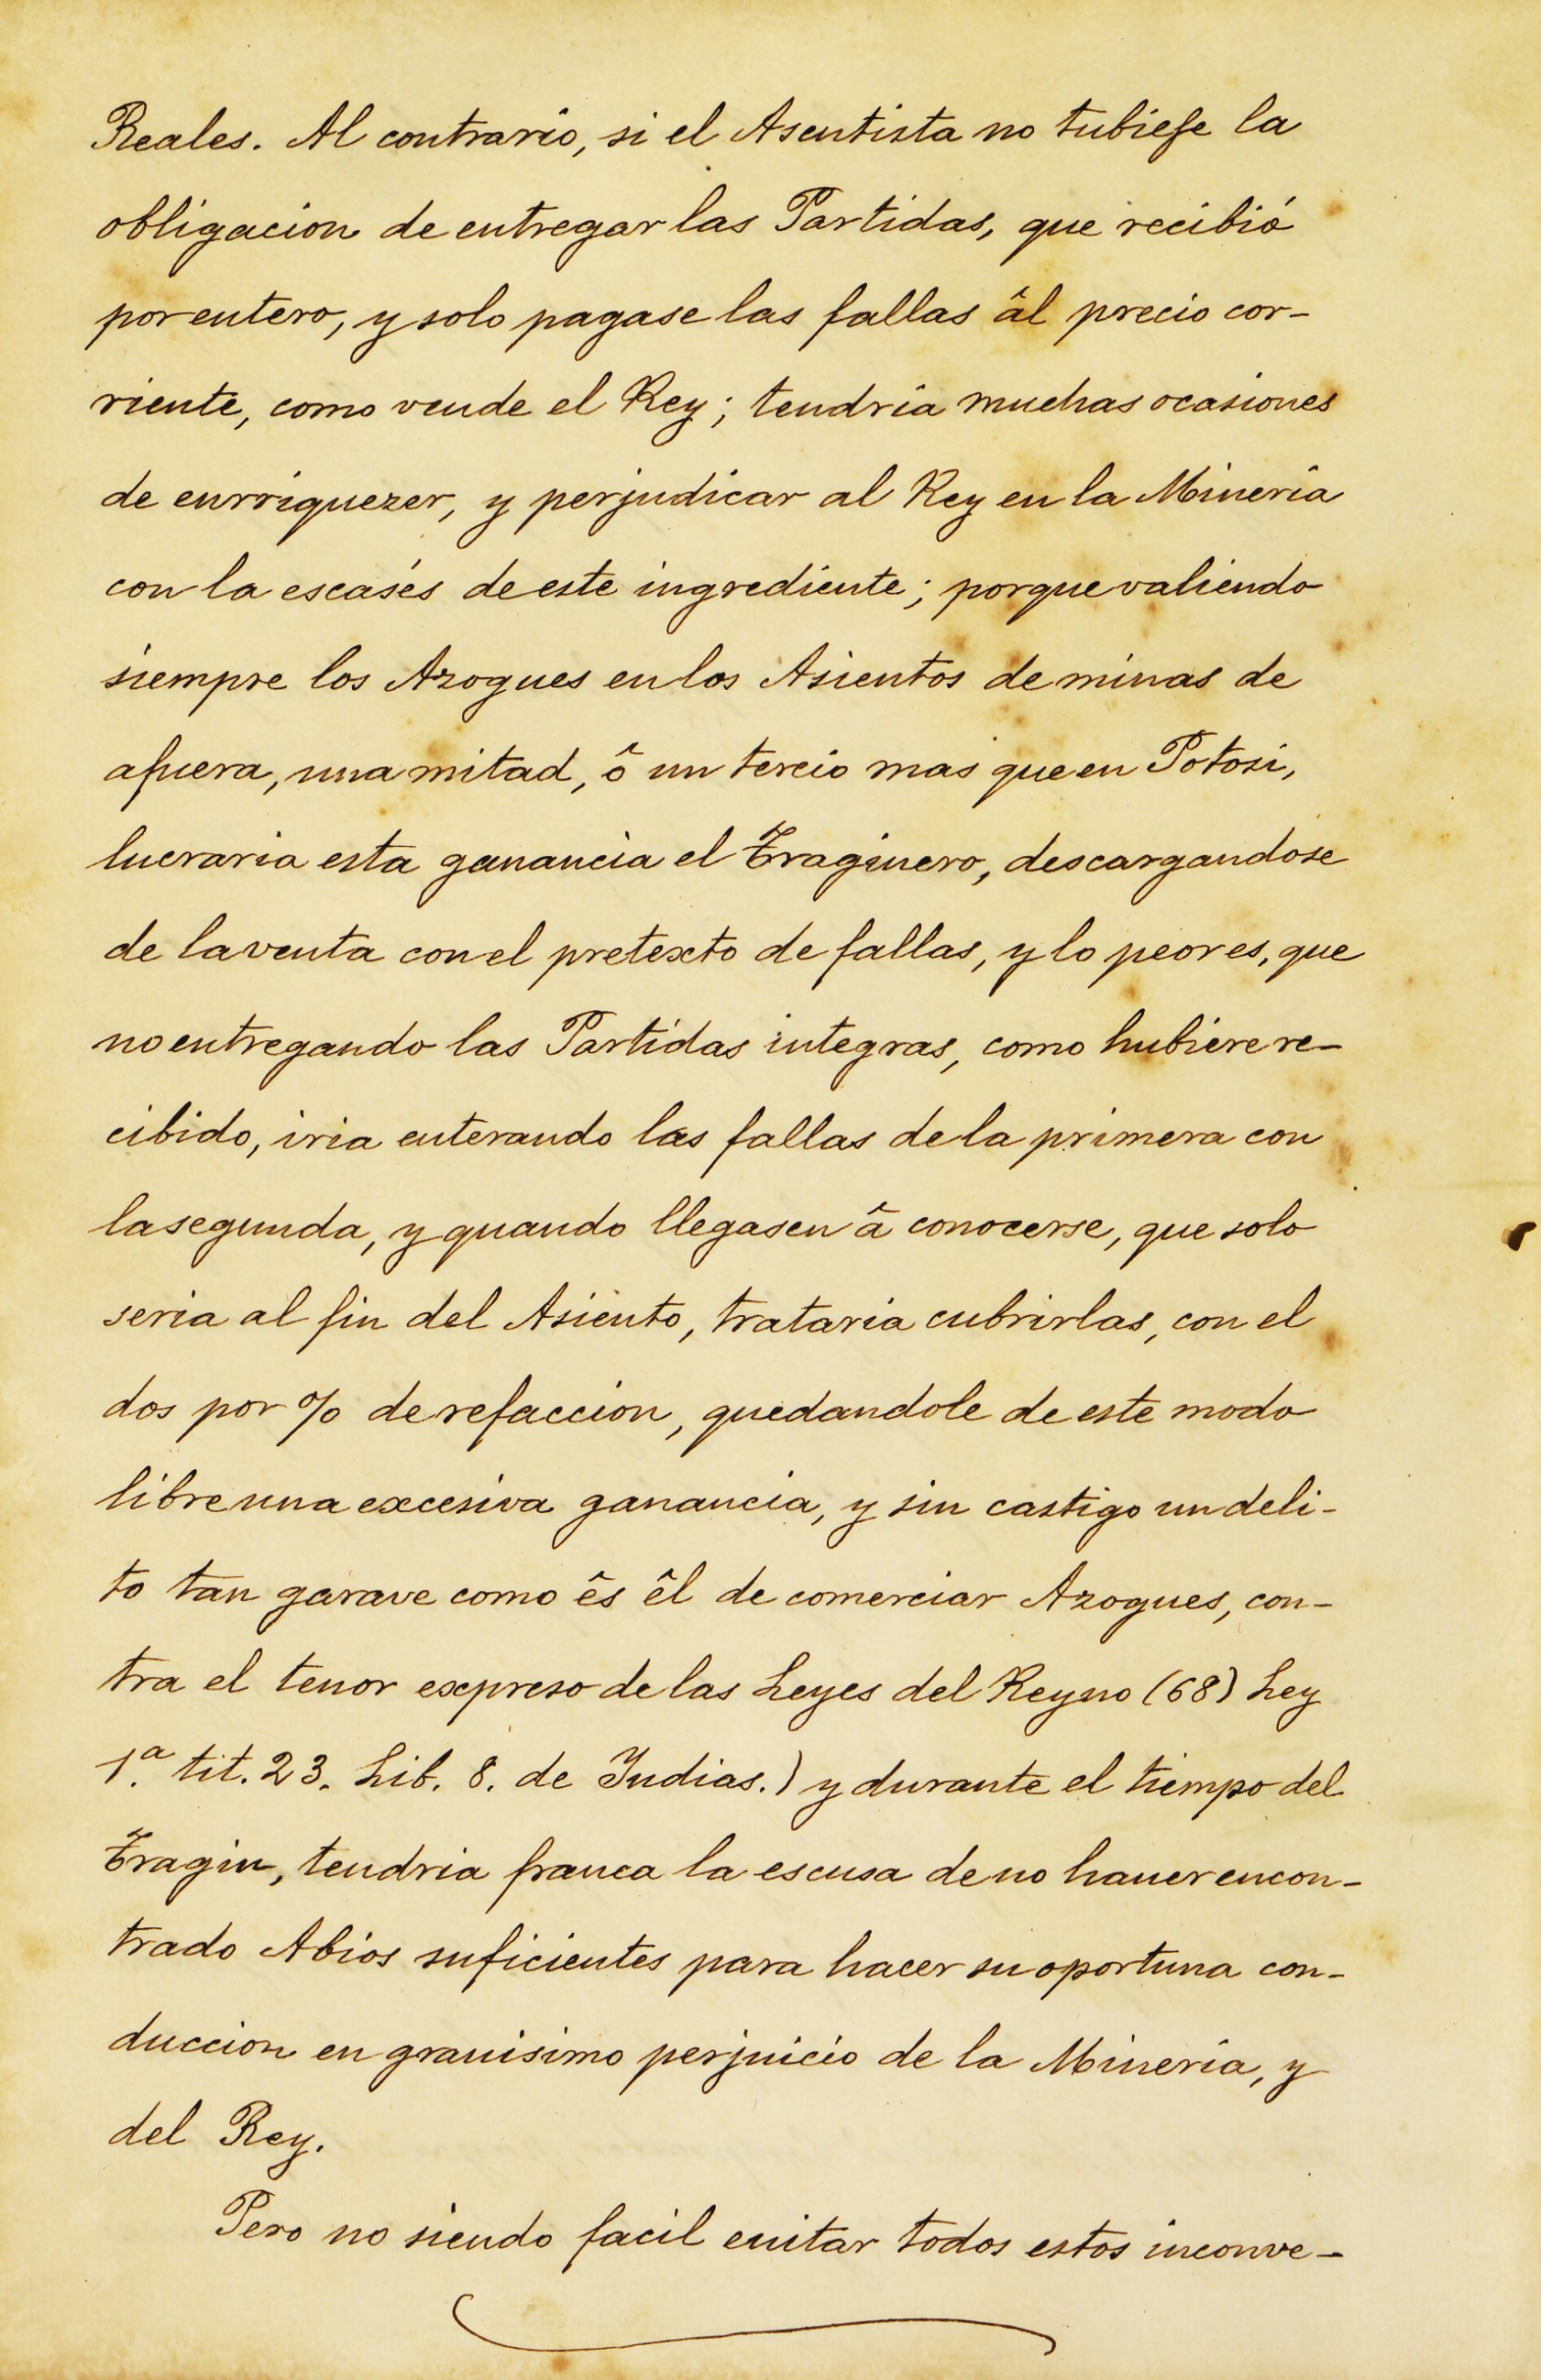 Reales. Al contrario, si el Asentista no tubiese la
obligacion de entregar las Partidas, que recibió
por entero, y solo pagase las fallas âl precio cor-
riente, como vende el Rey; tendria muchas ocasiones
de enrriquezer, y perjudicar al Rey en la Mineria
con la escasés de este ingrediente; porque valiendo
siempre los Azogues en los Asientos de minas de
afuera, una mitad, ô un tercio mas que en Potosi,
lucraria esta ganancia el Traginero, descargandose
de la venta con el pretexto de fallas, y lo peor es, que
no entregando las Partidas integras, como hubiere re-
cibido, iria enterando las fallas de la primera con
la segunda, y quando llegasen â conocerse, que solo
seria al fin del Asiento, trataria cubrirlas, con el
dos por % de refaccion, quedandole de este modo
libre una excesiva ganancia, y sin castigo un deli-
to tan garave como ês êl de comerciar Azogues, con-
tra el tenor expreso de las Leyes del Reyno (68) Ley
1.ª tit. 23. Lib. 8. de Indias.) y durante el tiempo del
Tragin, tendria franca la escusa de no hauer encon-
trado Abios suficientes para hacer su oportuna con-
duccion en grauisimo perjuicio de la Mineria, y
del Rey.
Pero no siendo facil euitar todos estos inconve-